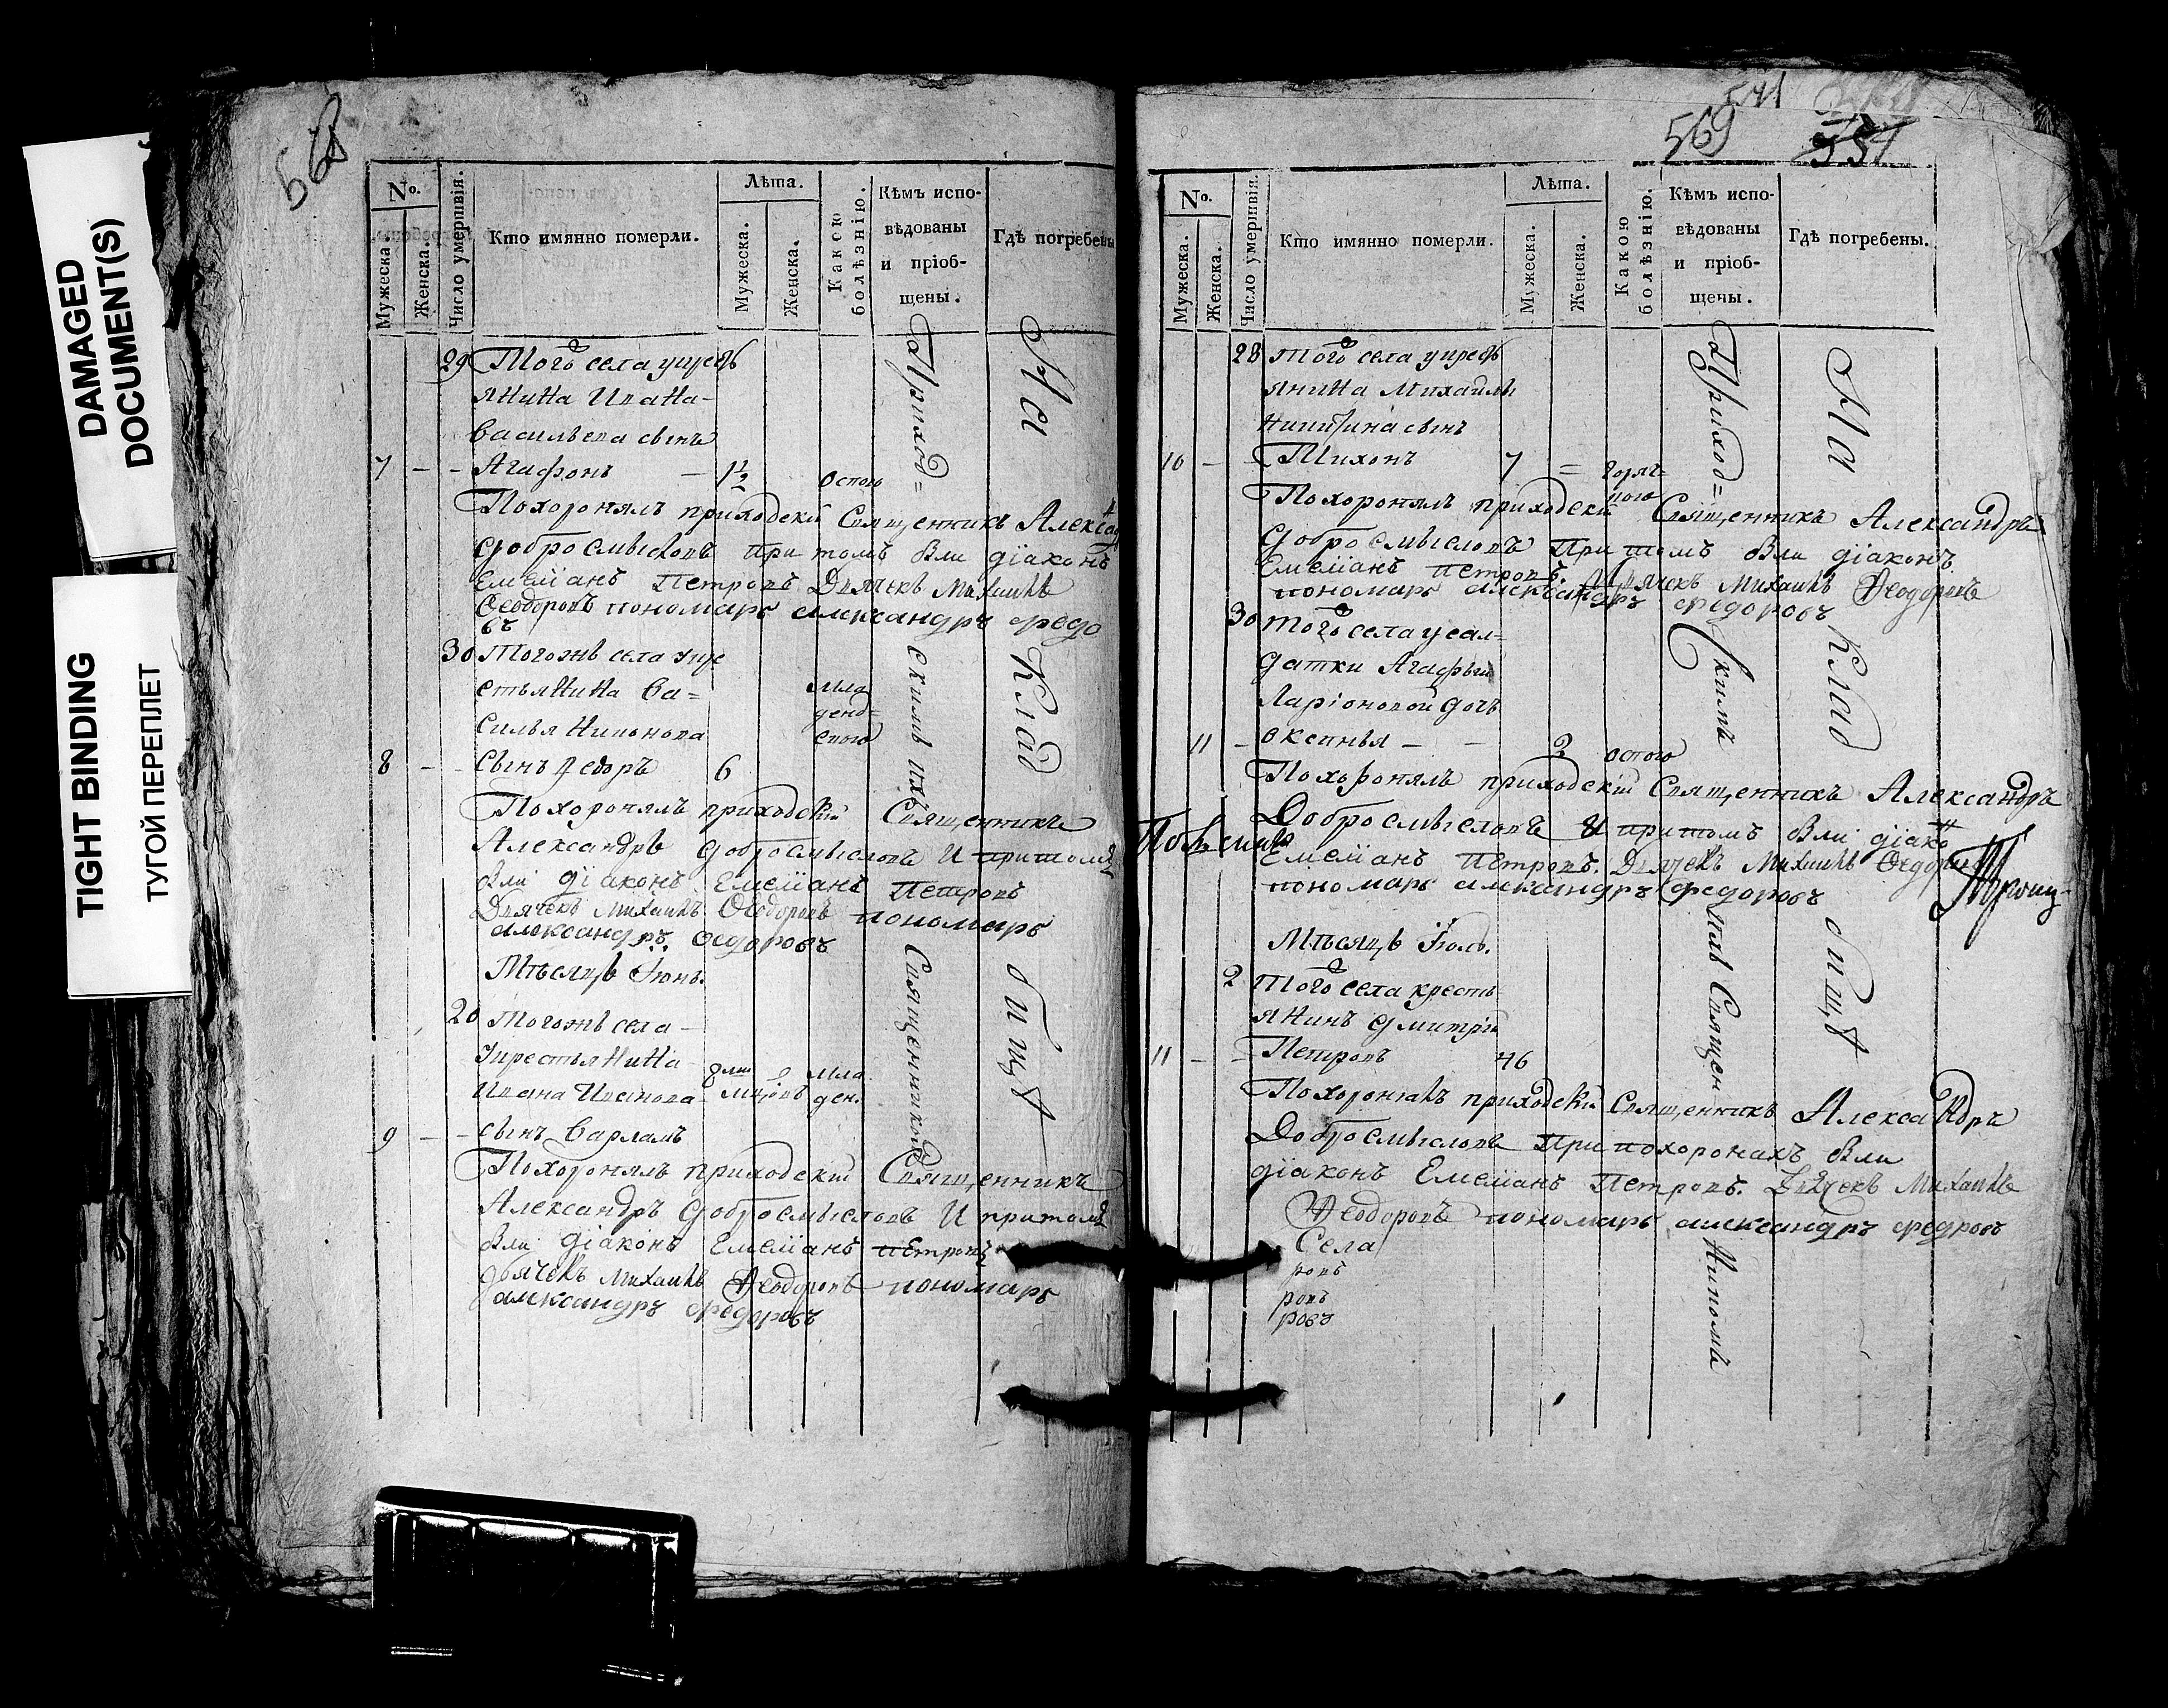 DAMAGED
DOCUMENT(S)
TIGHT BINDING
ТУГОЙ ПЕРЕПЛЕТ
568
№.
Мужеска.
Женска.
Число умершвія.
Кто имянно померли.
Лѣта.
Мужеска.
Женска.
Какою болѣзнію.
Кѣмъ испо-
вѣдованы
и пріоб-
щены.
Гдѣ погребены
29 Того села
янина Ивана
Васильева сынъ
7 - - Агафонъ - 1½ оспою
Похоронялъ приходскій Священникъ
Добросмысловъ При томъ были діаконъ
Емеліанъ Петровъ Дьячекъ Михаилъ
Ѳеодоровъ пономарь александръ федо
въ
30 Тогожъ села
стьянина Ва=
силья Никонова
мла
денс=
скою
8 - - сынъ Федоръ 6
Похоронялъ приходскій Священникъ
Александръ Добросмысловъ И притомъ
были діаконъ Емеліанъ Петровъ
Дьячекъ Михаилъ Ѳеодоровъ пономарь
александръ Федоровъ
Мѣсяцъ Іюнь.
20 Тогожъ села
крестьянина
Ивана Иванова
мла
ден.
9 - - сынъ Варламъ
Похоронялъ приходскій Священникъ
Александръ Добросмысловъ И притомъ
были діаконъ Емеліанъ Петровъ
дьячекъ Михаилъ Ѳеодоровъ пономарь
александръ федоровъ
Приход=
скимъ ихъ
Священникомъ
На
Клад
бищѣ
541
569
351
№.
Мужеска.
Женска.
Число умершвія.
Кто имянно померли.
Лѣта.
Мужеска.
Женска.
Какою болѣзнію.
Кѣмъ испо-
вѣдованы
и пріоб-
щены.
Гдѣ погребены.
28 Того села
янина Михаилы
Никитина сынъ
10 - - Тихонъ 7 = горяч=
кою
Похоронялъ приходскій Священникъ Александръ
Добросмысловъ При томъ были діаконъ
Емеліанъ Петровъ. Дьячекъ Михаилъ Ѳеодоровъ
пономарь александръ федоровъ
30 Того села у сал=
датки Агафьи
Ларіоновой дочь
11 - оксинья - - 2 оспою
Похоронялъ приходскій Священникъ Александръ
Добросмысловъ И притомъ были діако
Емеліанъ Петровъ. Дьячекъ Михаилъ
пономарь александръ федоровъ
Мѣсяцъ Іюль.
2 Того села кресть
янинъ Дмитрій
11 - - Петровъ 46
Похоронялъ приходскій Священникъ Александръ
Добросмысловъ При похоронахъ были
діаконъ Емеліанъ Петровъ. Дьячекъ Михаилъ
Ѳеодоровъ пономарь александръ федровъ
Села
ровъ
ровъ
ровъ
Приход=
скимъ
ихъ Священ
никомъ
На
Клад
бищѣ